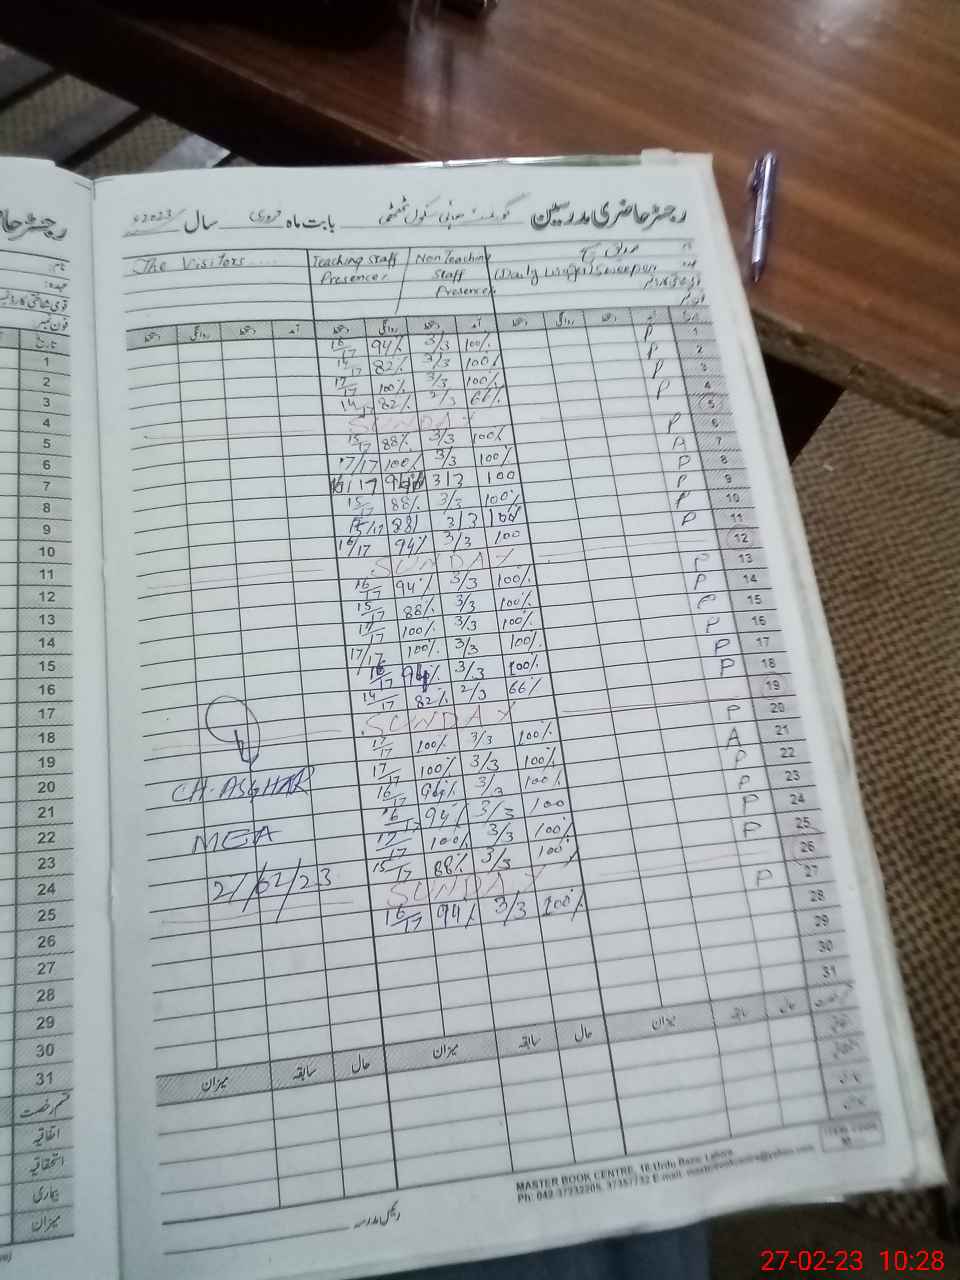 رجسٹر حاضری مدرسین گورنمنٹ سکول بابت ماہ فروری سال 2023ء
The Visitors.... Teaching Staff Non Teaching
Presence: Staff (Daily wages) Sweeper
Presence:
دستخط روانگی دستخط آمد دستخط روانگی دستخط آمد دستخط روانگی دستخط آمد تاریخ
16/17 94% 3/3 100% P 1
14/17 82% 3/3 100% P 2
17/17 100% 3/3 100% P 3
14/17 82% 2/3 66% P 4
SUNDAY 5
15/17 88% 3/3 100% P 6
17/17 100% 3/3 100% A 7
16/17 94% 3/3 100 P 8
15/17 88% 3/3 100% P 9
15/17 88% 3/3 100% P 10
16/17 94% 3/3 100 P 11
SUNDAY 12
16/17 94% 3/3 100% P 13
15/17 88% 3/3 100% P 14
17/17 100% 3/3 100% P 15
17/17 100% 3/3 100% P 16
16/17 94% 3/3 100% P 17
14/17 82% 2/3 66% P 18
SUNDAY 19
17/17 100% 3/3 100% P 20
17/17 100% 3/3 100% A 21
16/17 94% 3/3 100% P 22
16/17 94% 3/3 100 P 23
17/17 100% 3/3 100% P 24
15/17 88% 3/3 100% P 25
SUNDAY 26
16/17 94% 3/3 100% P 27
28
29
30
31
CH. ASGHAR
MEA
27/02/23
میزان سابقہ حال میزان سابقہ حال میزان سابقہ حال
رئیس مدرسہ
MASTER BOOK CENTRE, 16-Urdu Bazar Lahore
Ph: 042-37232205, 37357732 E-mail:
رجسٹر حا
تاریخ
1
2
3
4
5
6
7
8
9
10
11
12
13
14
15
16
17
18
19
20
21
22
23
24
25
26
27
28
29
30
31
قسم رخصت
اتفاقیہ
استحقاقیہ
بیماری
میزان
27-02-23 10:28